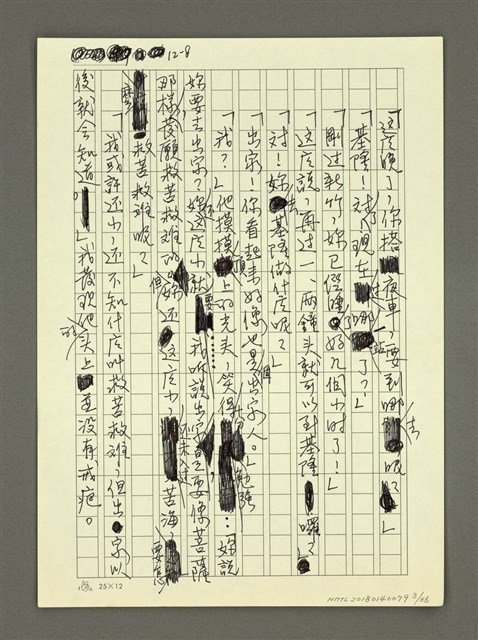 12-8
「這麼晚了,你搭夜車,要到哪去呢?」
「基隆!對了,現在到哪一站了?」
「剛過新竹,妳已經睡好幾個小時了!」
「這麼說,再過一、兩鐘頭就可以到基隆囉?」
「對!妳去基隆做什麼呢?」
「出家!你看起來好像也是個出家人。」
「我?」他摸摸頂上的光頭,笑得勉強:妳說
妳要去出家?妳還這麼小就要……我聽說出家是要像菩薩
那樣發願救苦救難的。但妳還這麼小,還未入過苦海,要怎
麼救苦救難呢?」
「我或許還小,還不知什麼叫救苦救難,但出家以
後就會知道。」我發現他頭上的並沒有戒疤。
25×12
NMTL20180140079 3/26